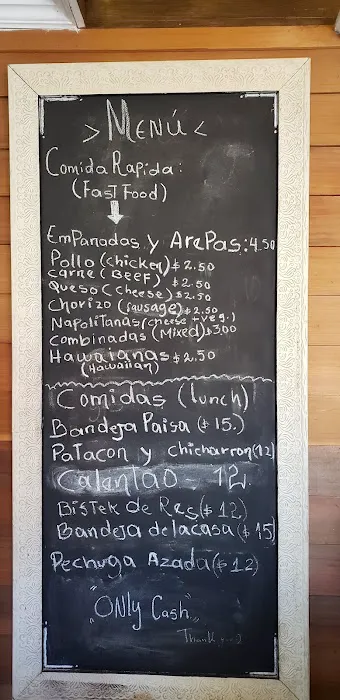 > MENÚ <
Comida Rapida:
(Fast Food)
EmPanadas y ArePas: 4.50
Pollo (chicken) $ 2.50
carne (BEEF) $ 2.50
Queso (cheese) $2.50
Chorizo (sausage) $2.50
Napolitanas (cheese + veg.)
Combinadas (Mixed) $3.00
Hawaianas $ 2.50
(Hawaiian)
Comidas (lunch)
Bandeja Paisa ($ 15.)
Patacon y chicharron (12)
Calentao - 12.
Bistek de Res ($ 12)
Bandeja de la casa ($ 15)
Pechuga Azada ($ 12)
"ONly Cash"
Thank you